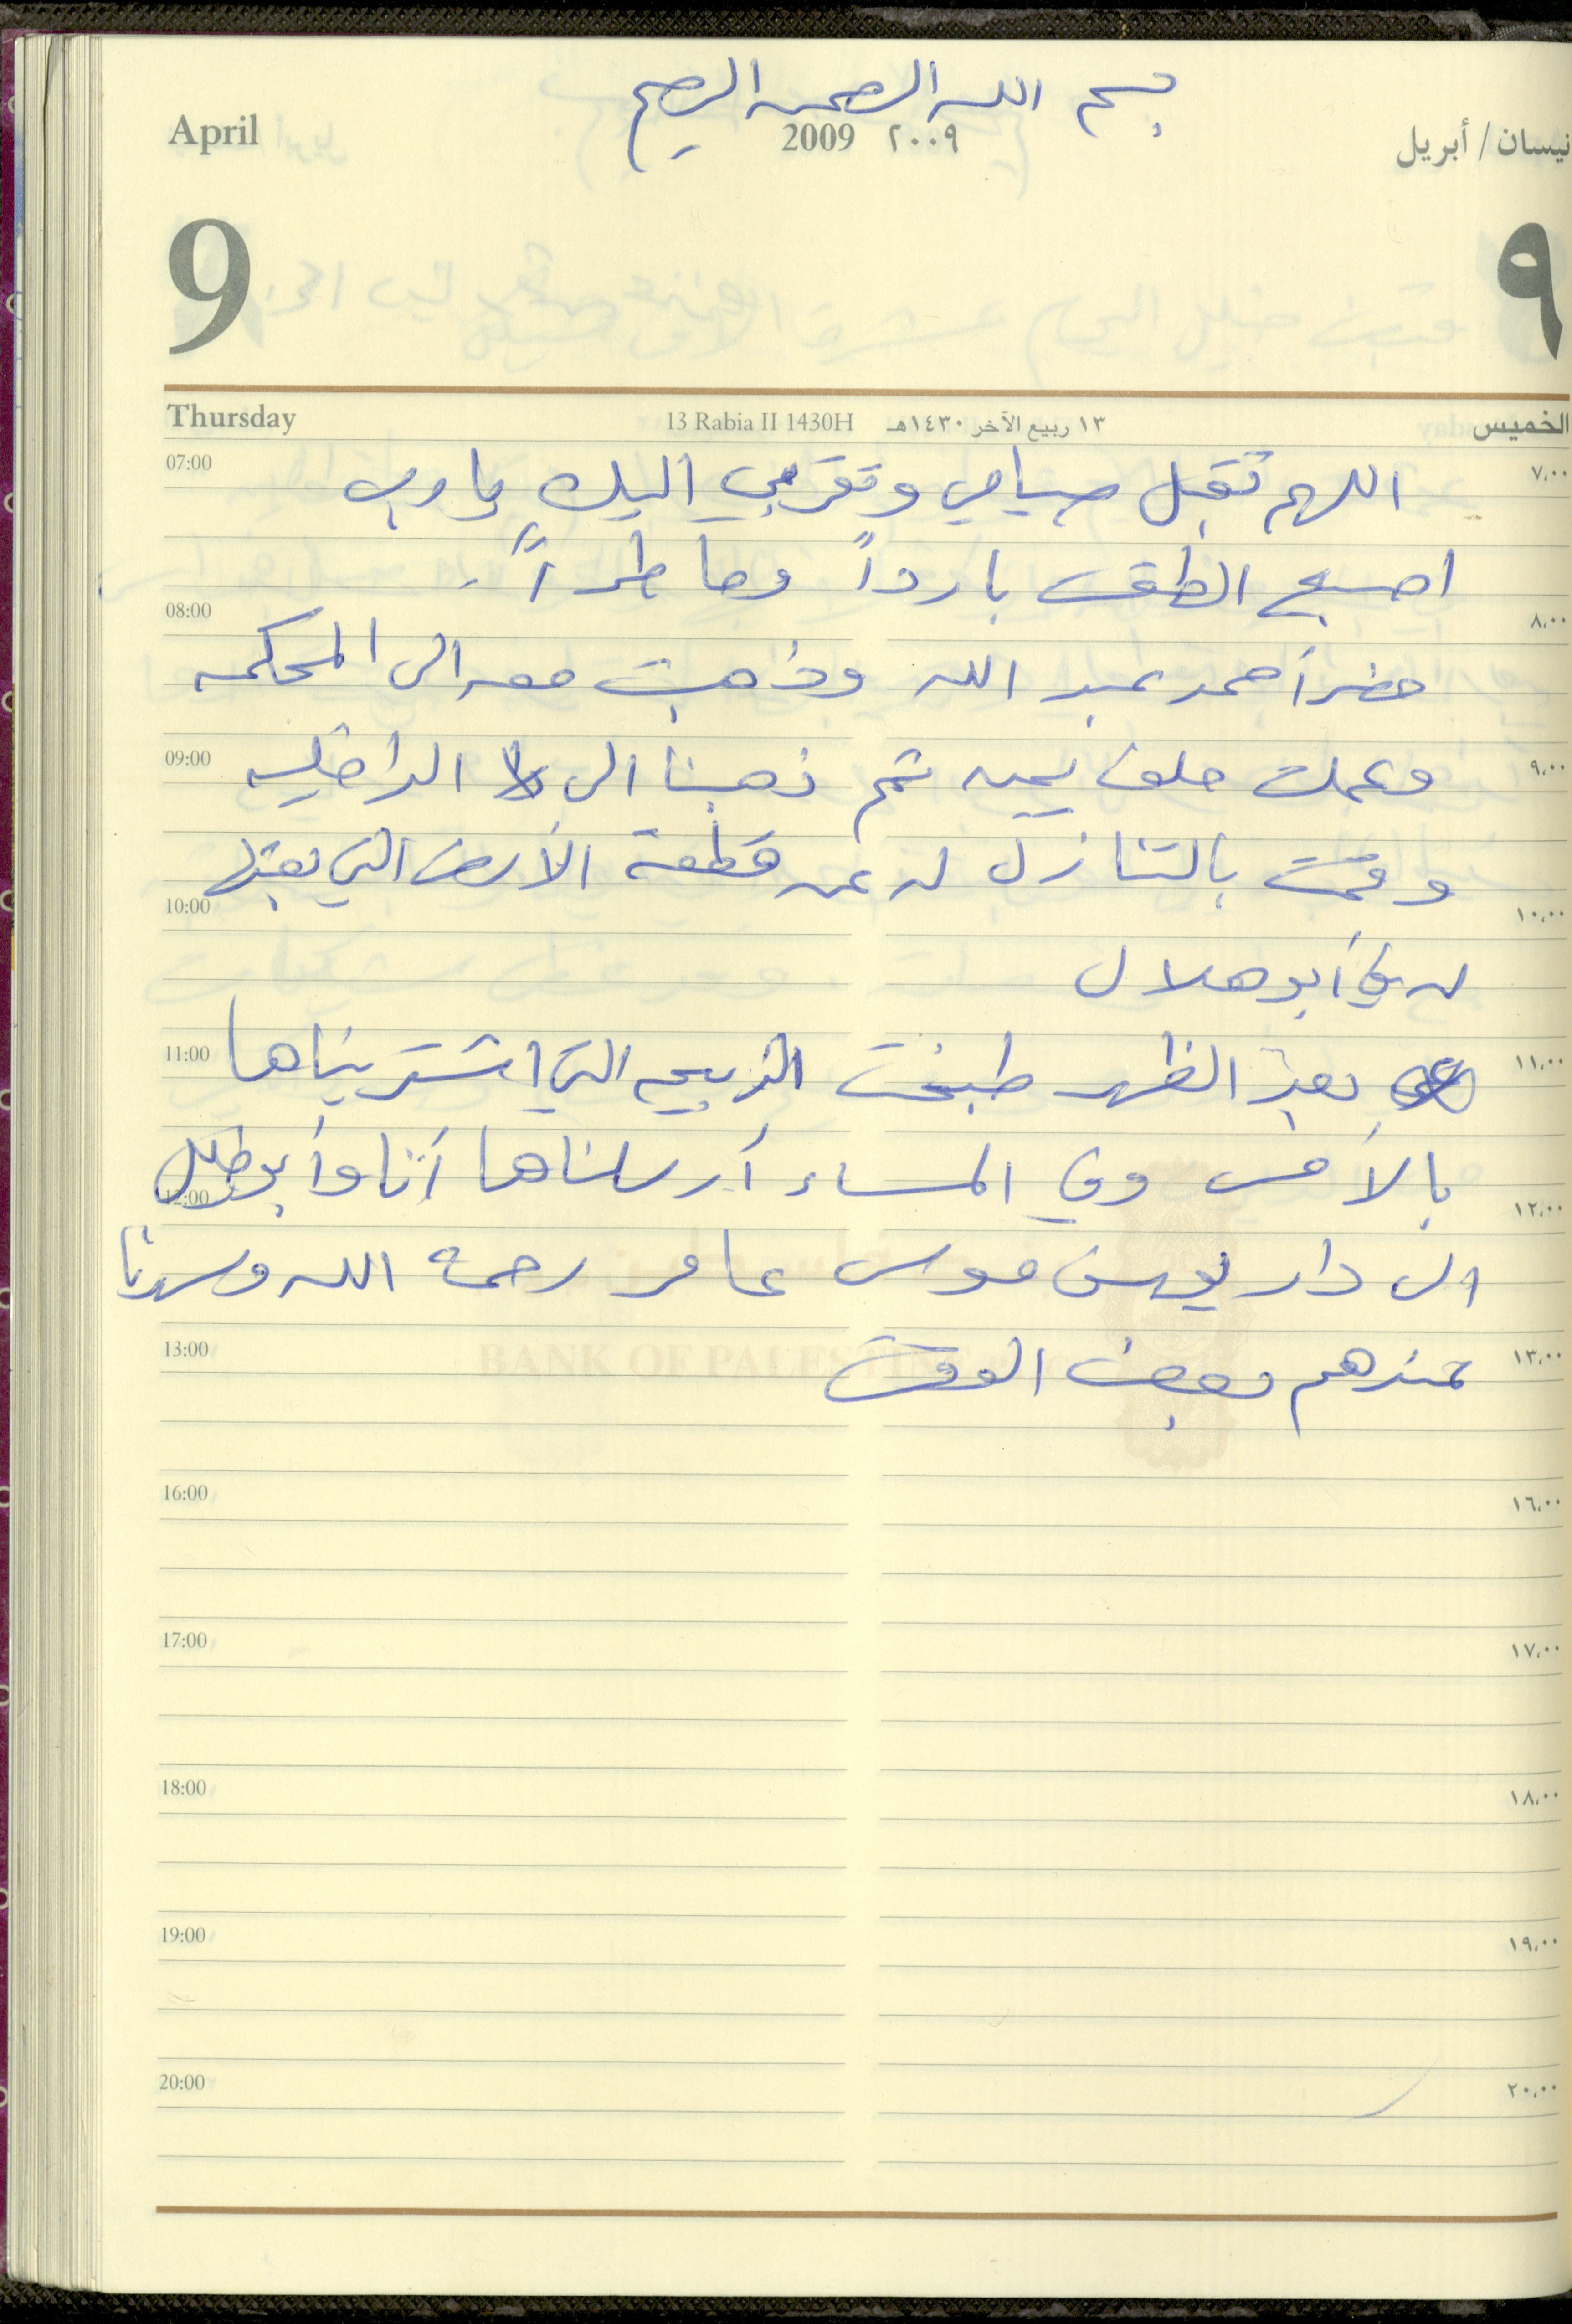 بسم الله الرحمن الرحيم
April 2009 ٢٠٠٩ نيسان / أبريل
9 ٩
Thursday 13 Rabia II 1430H ١٣ ربيع الآخر ١٤٣٠هـ الخميس
07:00 اللهم تقبل صيامي وتقربي اليك يا رب ٧,٠٠
اصبح الطقس بارداً وماطراً.
08:00 ٨,٠٠
حضر أحمد عبد الله وذهبت معه الى المحكمه
09:00 وعملت حلف يمين ثم ذهبنا الى الداخليه ٩,٠٠
وقمت بالتنازل له عن قطعة الأرض التي بعتها
10:00 ١٠,٠٠
له في أبو هلال
11:00 بعد الظهر طبخت الذبيحه التي اشتريناها ١١,٠٠
بالأمس وفي المساء أرسلناها أنا وأبو خليل
12:00 ١٢,٠٠
الى دار يوسف موسى عامر رحمه الله وسهرنا
13:00 عندهم بعض الوقت ١٣,٠٠
BANK OF PALESTINE
16:00 ١٦,٠٠
17:00 ١٧,٠٠
18:00 ١٨,٠٠
19:00 ١٩,٠٠
20:00 ٢٠,٠٠